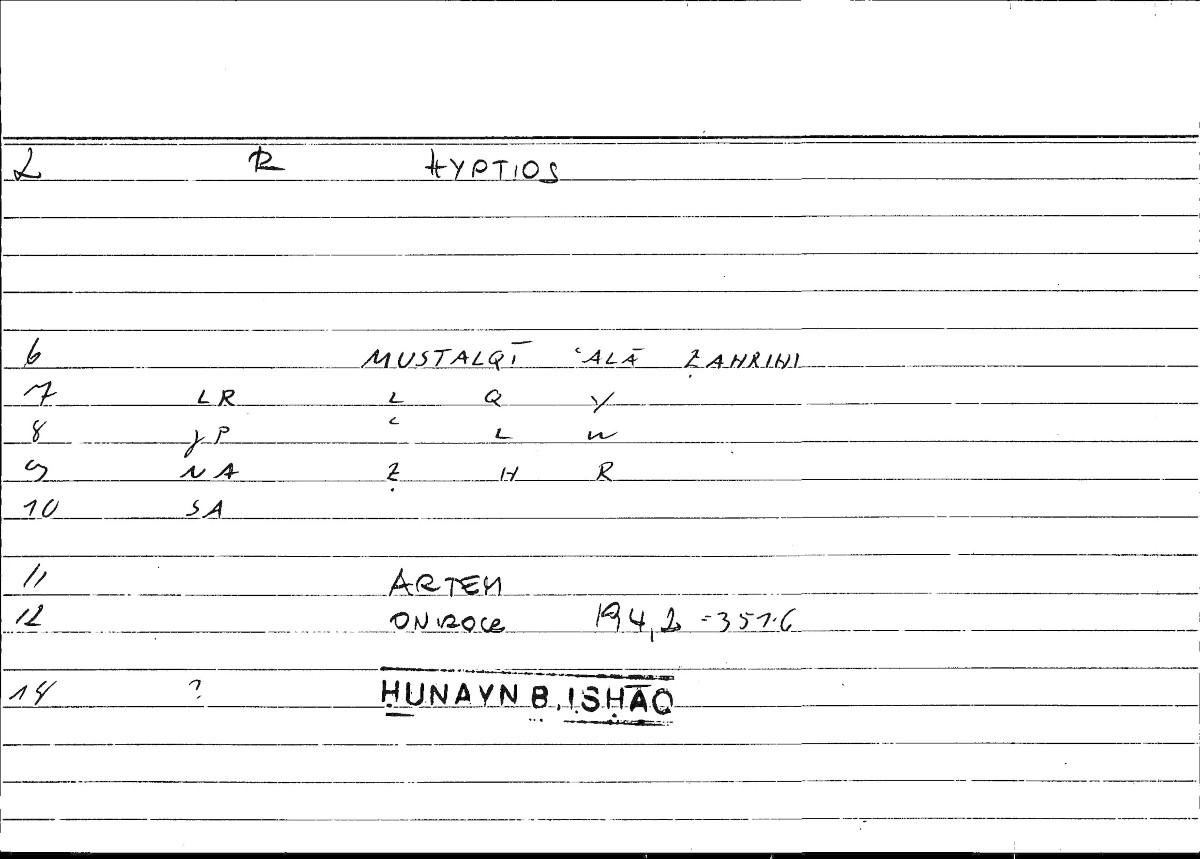 2 R HYPTIOS
6 MUSTALQĪ ʿALĀ ẒAHRIHI
7 LR L Q Y
8 γP ʿ L W
9 NA Ẓ H R
10 SA
11 ARTEM
12 ONIROCR 194,2 = 351.6
14 ? ḤUNAYN B. ISḤĀQ